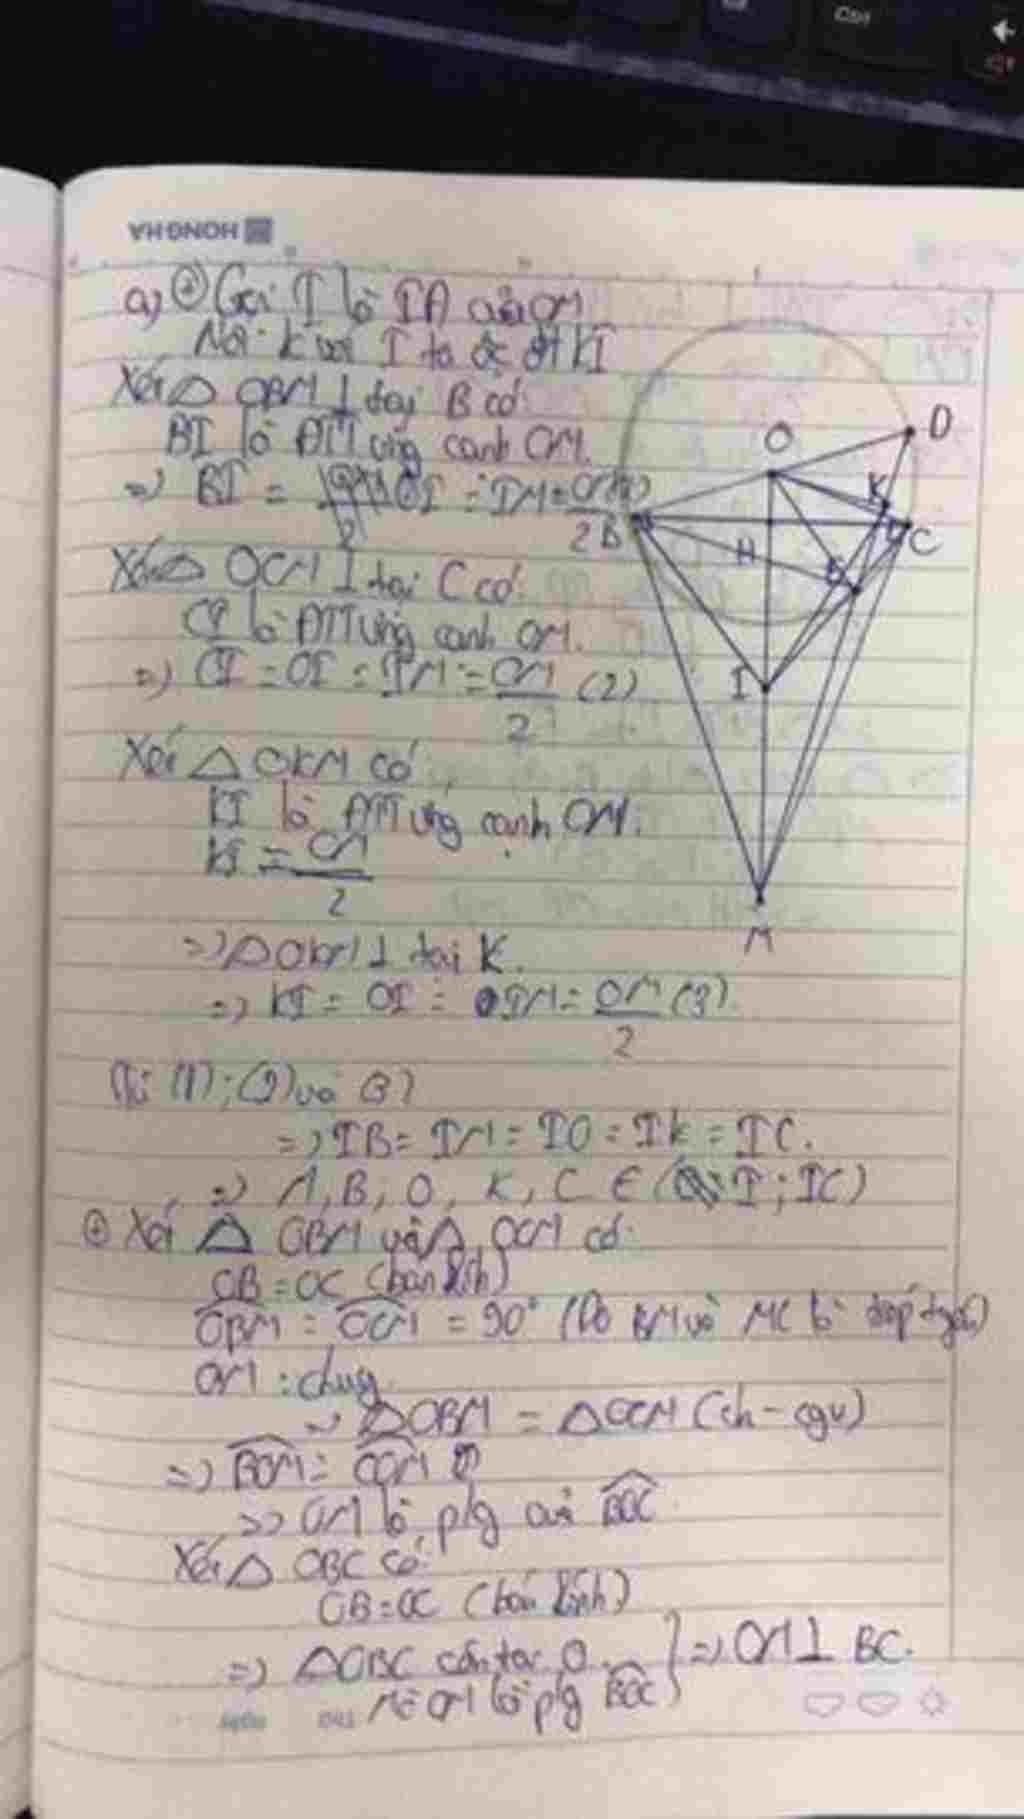 Ctrl
HONG HA
a) ⊕ Gọi I là TĐ của OM
Nối K với I ta đc đt KI
Xét △ OBM ⊥ tại B có
BI là ĐTT ứng cạnh OM.
=> BI = OI = IM = OM/2
Xét △ OCM ⊥ tại C có:
CI là ĐTT ứng cạnh OM.
=> CI = OI = IM = OM/2 (2)
Xét △ OKM có
KI là ĐTT ứng cạnh OM.
KI = OM/2
=> △OKM ⊥ tại K.
=> KI = OI = IM = OM/2 (3)
Từ (1); (2) và (3)
=> IB = IM = IO = IK = IC.
=> M, B, O, K, C ∈ (I; IC)
⊕ Xét △ OBM và △ OCM có:
OB = OC (bán kính)
OBM = OCM = 90° (Do BM và MC là tiếp tuyến)
OM : chung
=> △OBM = △OCM (ch - cgv)
=> BOM = COM
=> OM là p/g của BOC
Xét △ OBC có
OB = OC (bán kính)
=> △OBC cân tại O. } => OM ⊥ BC.
Mà OM là p/g BOC
O
D
K
B
H
C
I
M